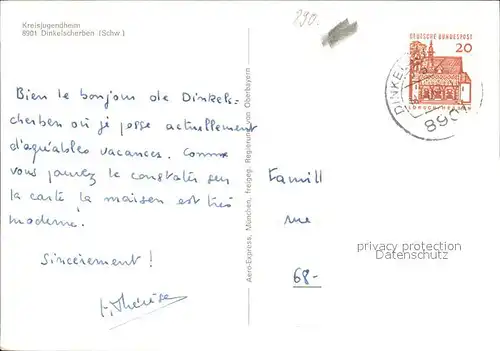 Kreisjugendheim
8901 Dinkelscherben (Schw.)
290.
DEUTSCHE BUNDESPOST
20
LORSCH HESSEN
DINKEL
8901
Bien le bonjour de Dinkels-
cherben où je passe actuellement
d'agréables vacances. Comme
vous pouvez le constater sur
la carte la maison est très
moderne.
Sincèrement !
Thérèse
Aero-Express, München, freigeg. Regierung von Oberbayern
Famill
rue
68-
privacy protection
Datenschutz